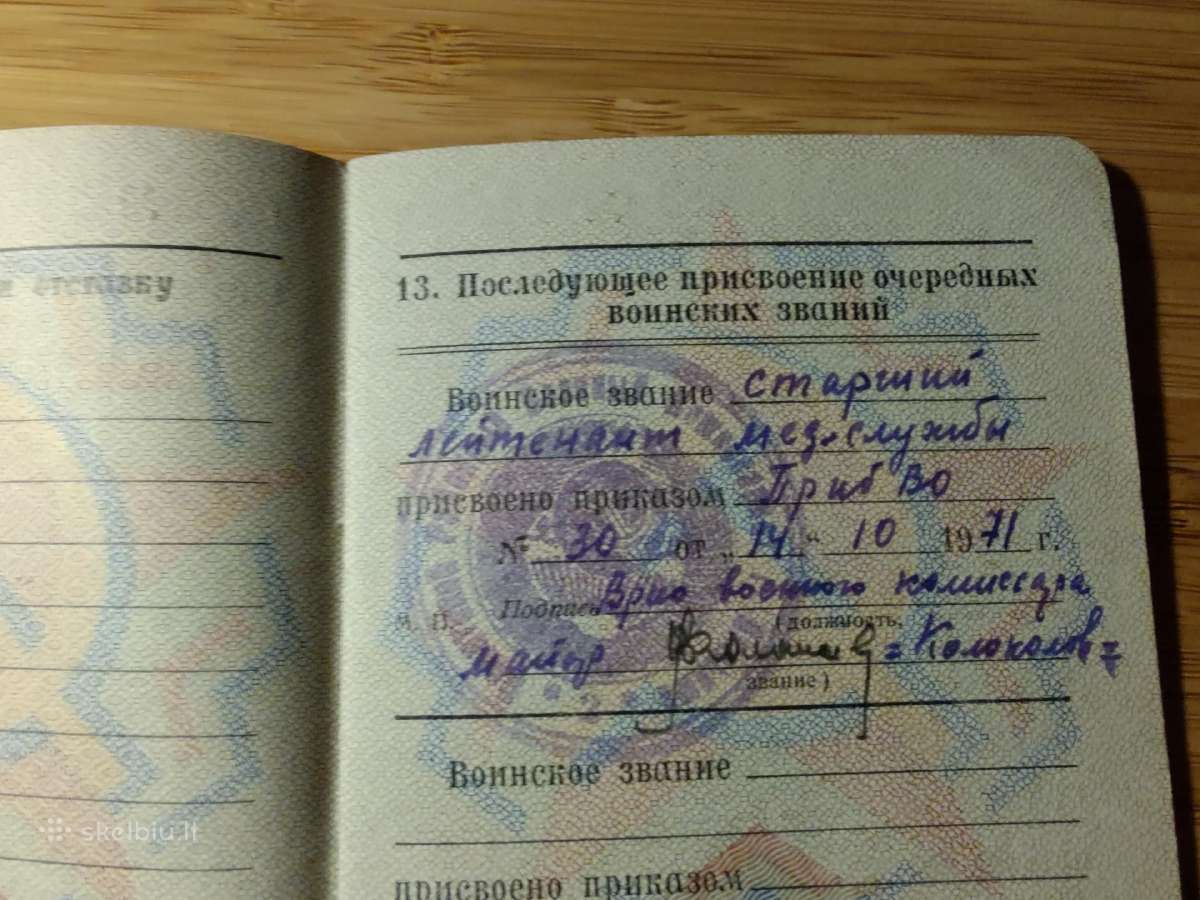 отставку
13. Последующее присвоение очередных
воинских званий
Воинское звание старший
лейтенант мед. службы
присвоено приказом Приб ВО
№ 30 от „14“ 10 1971 г.
М. П. Подпись Врио военного комиссара
(должность,
майор =Колоколов=
звание)
Воинское звание
присвоено приказом
skelbiu.lt